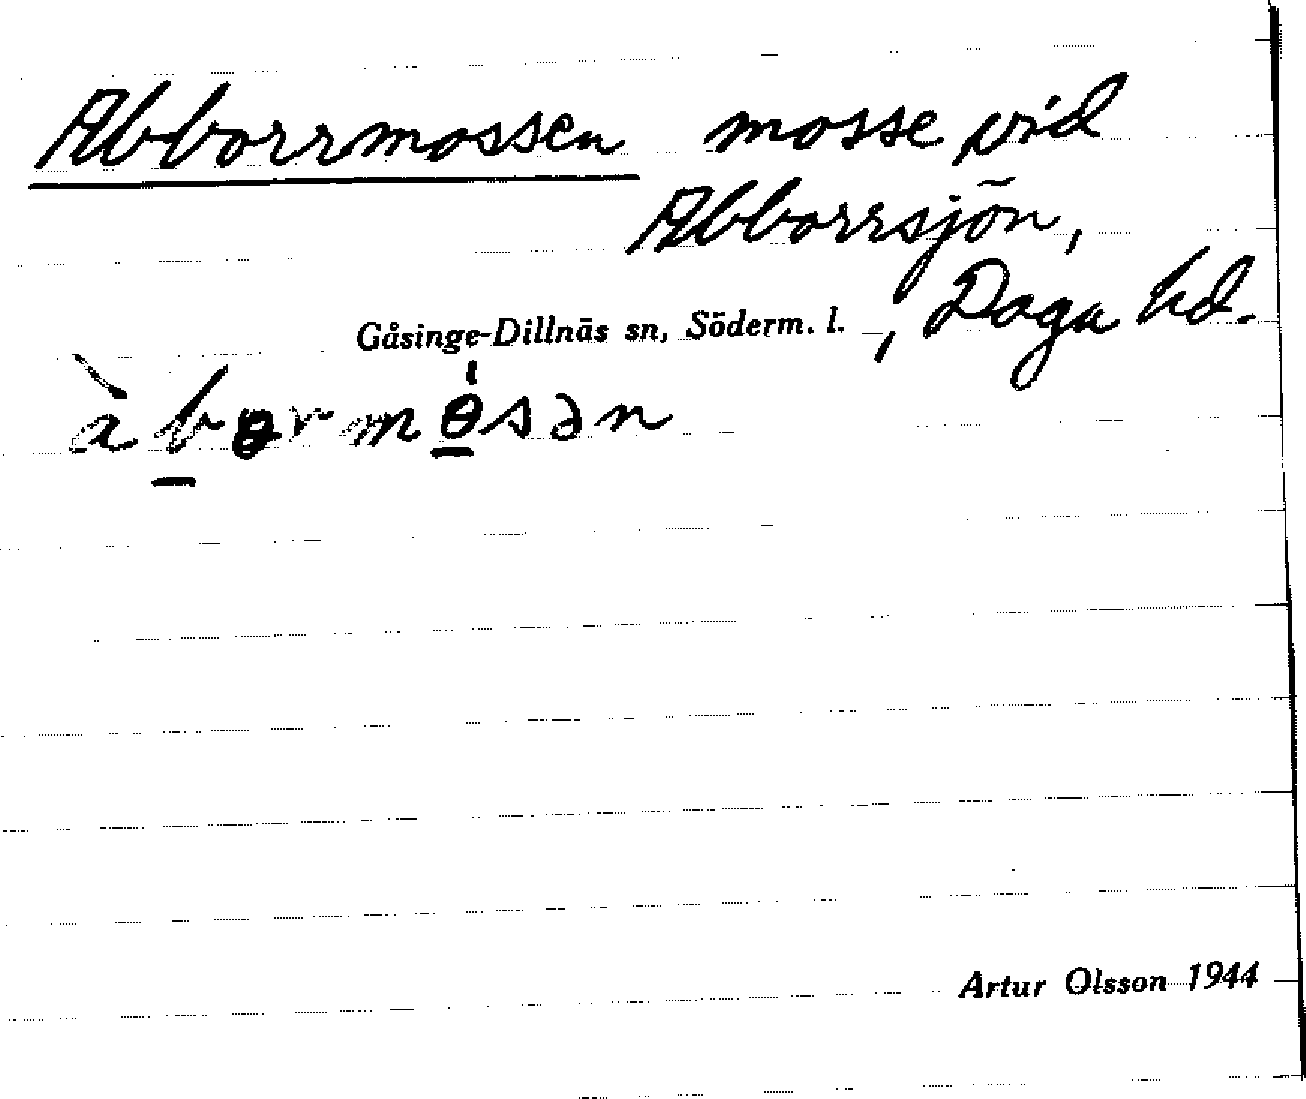 Abborrmossen mosse vid
Abborrsjön,
Gåsinge-Dillnäs sn, Söderm. l. , Daga hd.
àbɵrmɵ́sən
Artur Olsson 1944